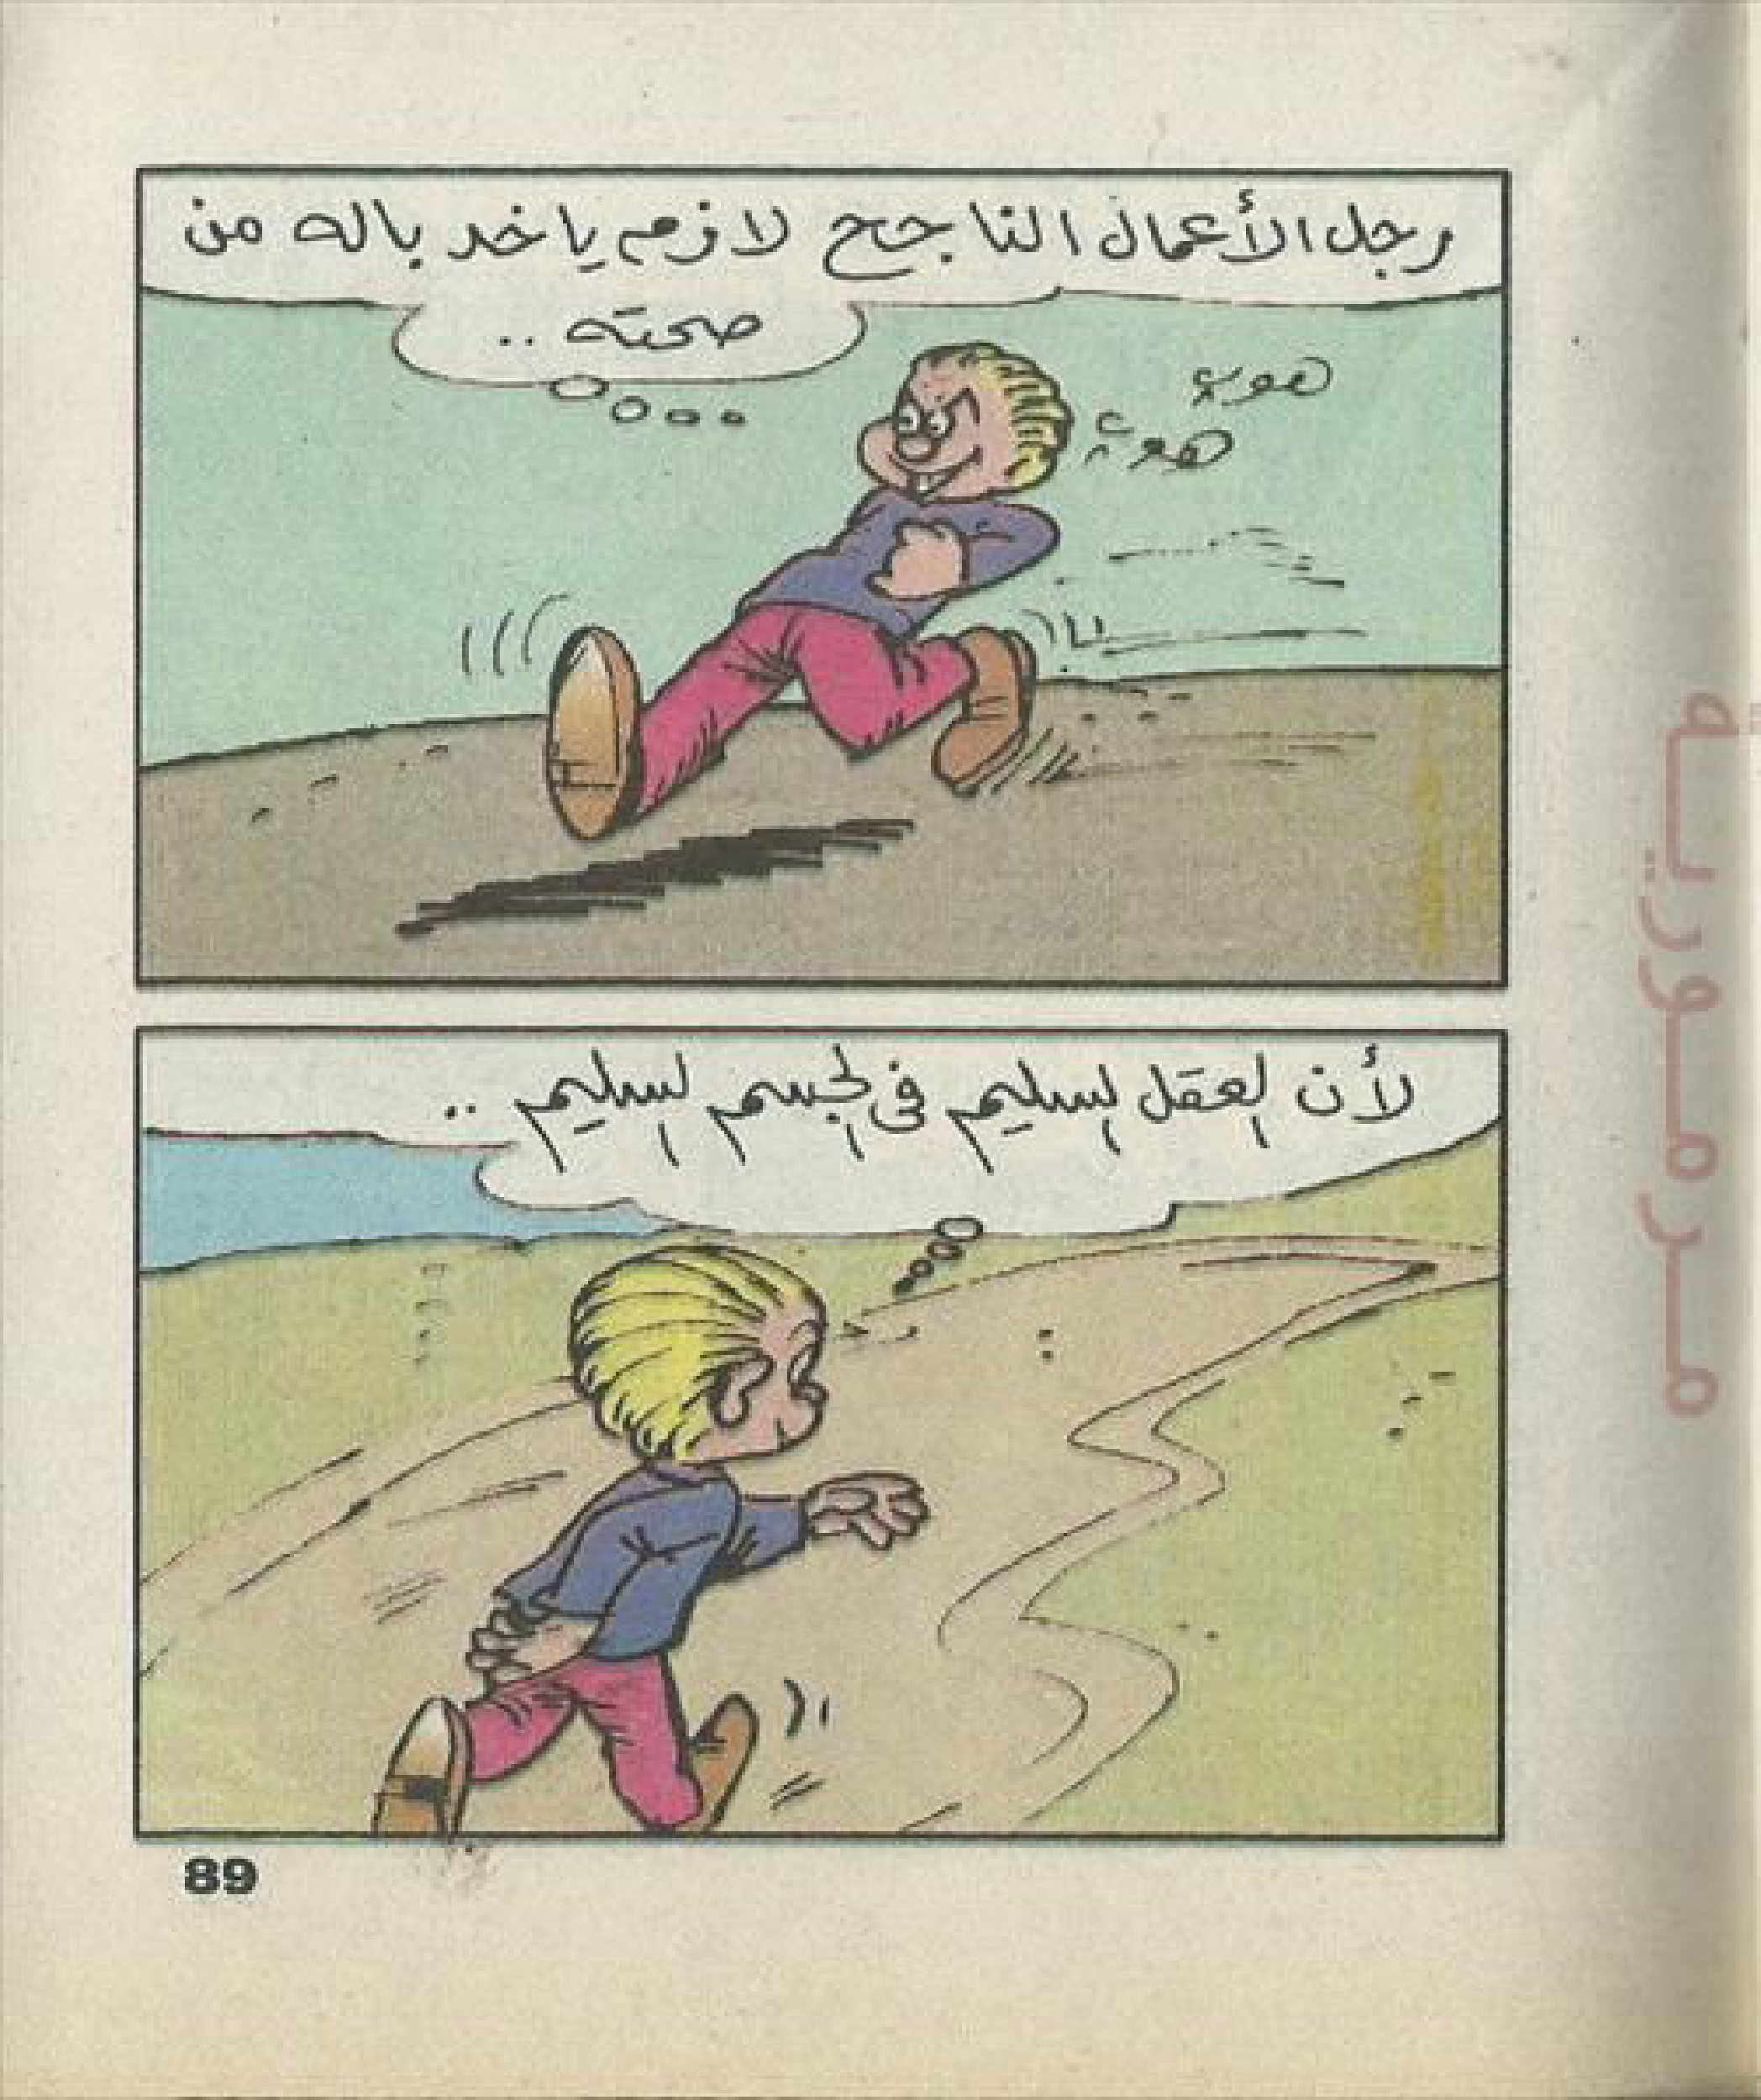 رجل الأعمال الناجح لازم ياخد باله من
صحته ..
هوء
هوء
لأن العقل السليم فى الجسم السليم ..
89
مرمورية